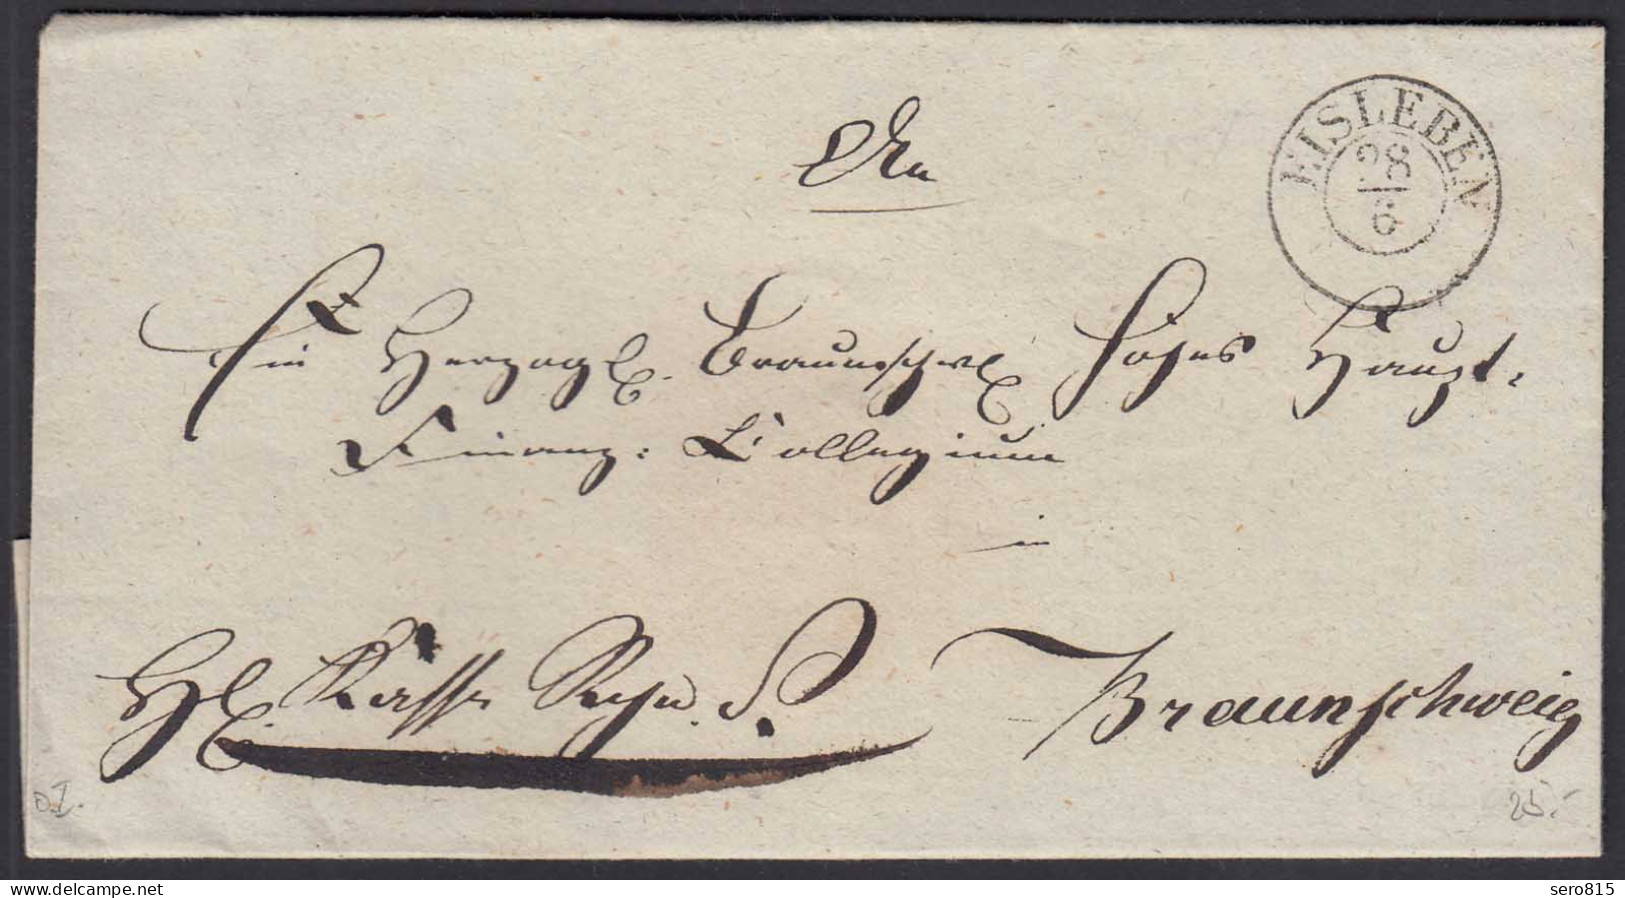 An
EISLEBEN
28
6
Ein Herzogl. Braunschwl. Hohes Haupt-
Finanz-Collegium
in
Hl. Braunschweig
25.-
delcampe.net
sero815